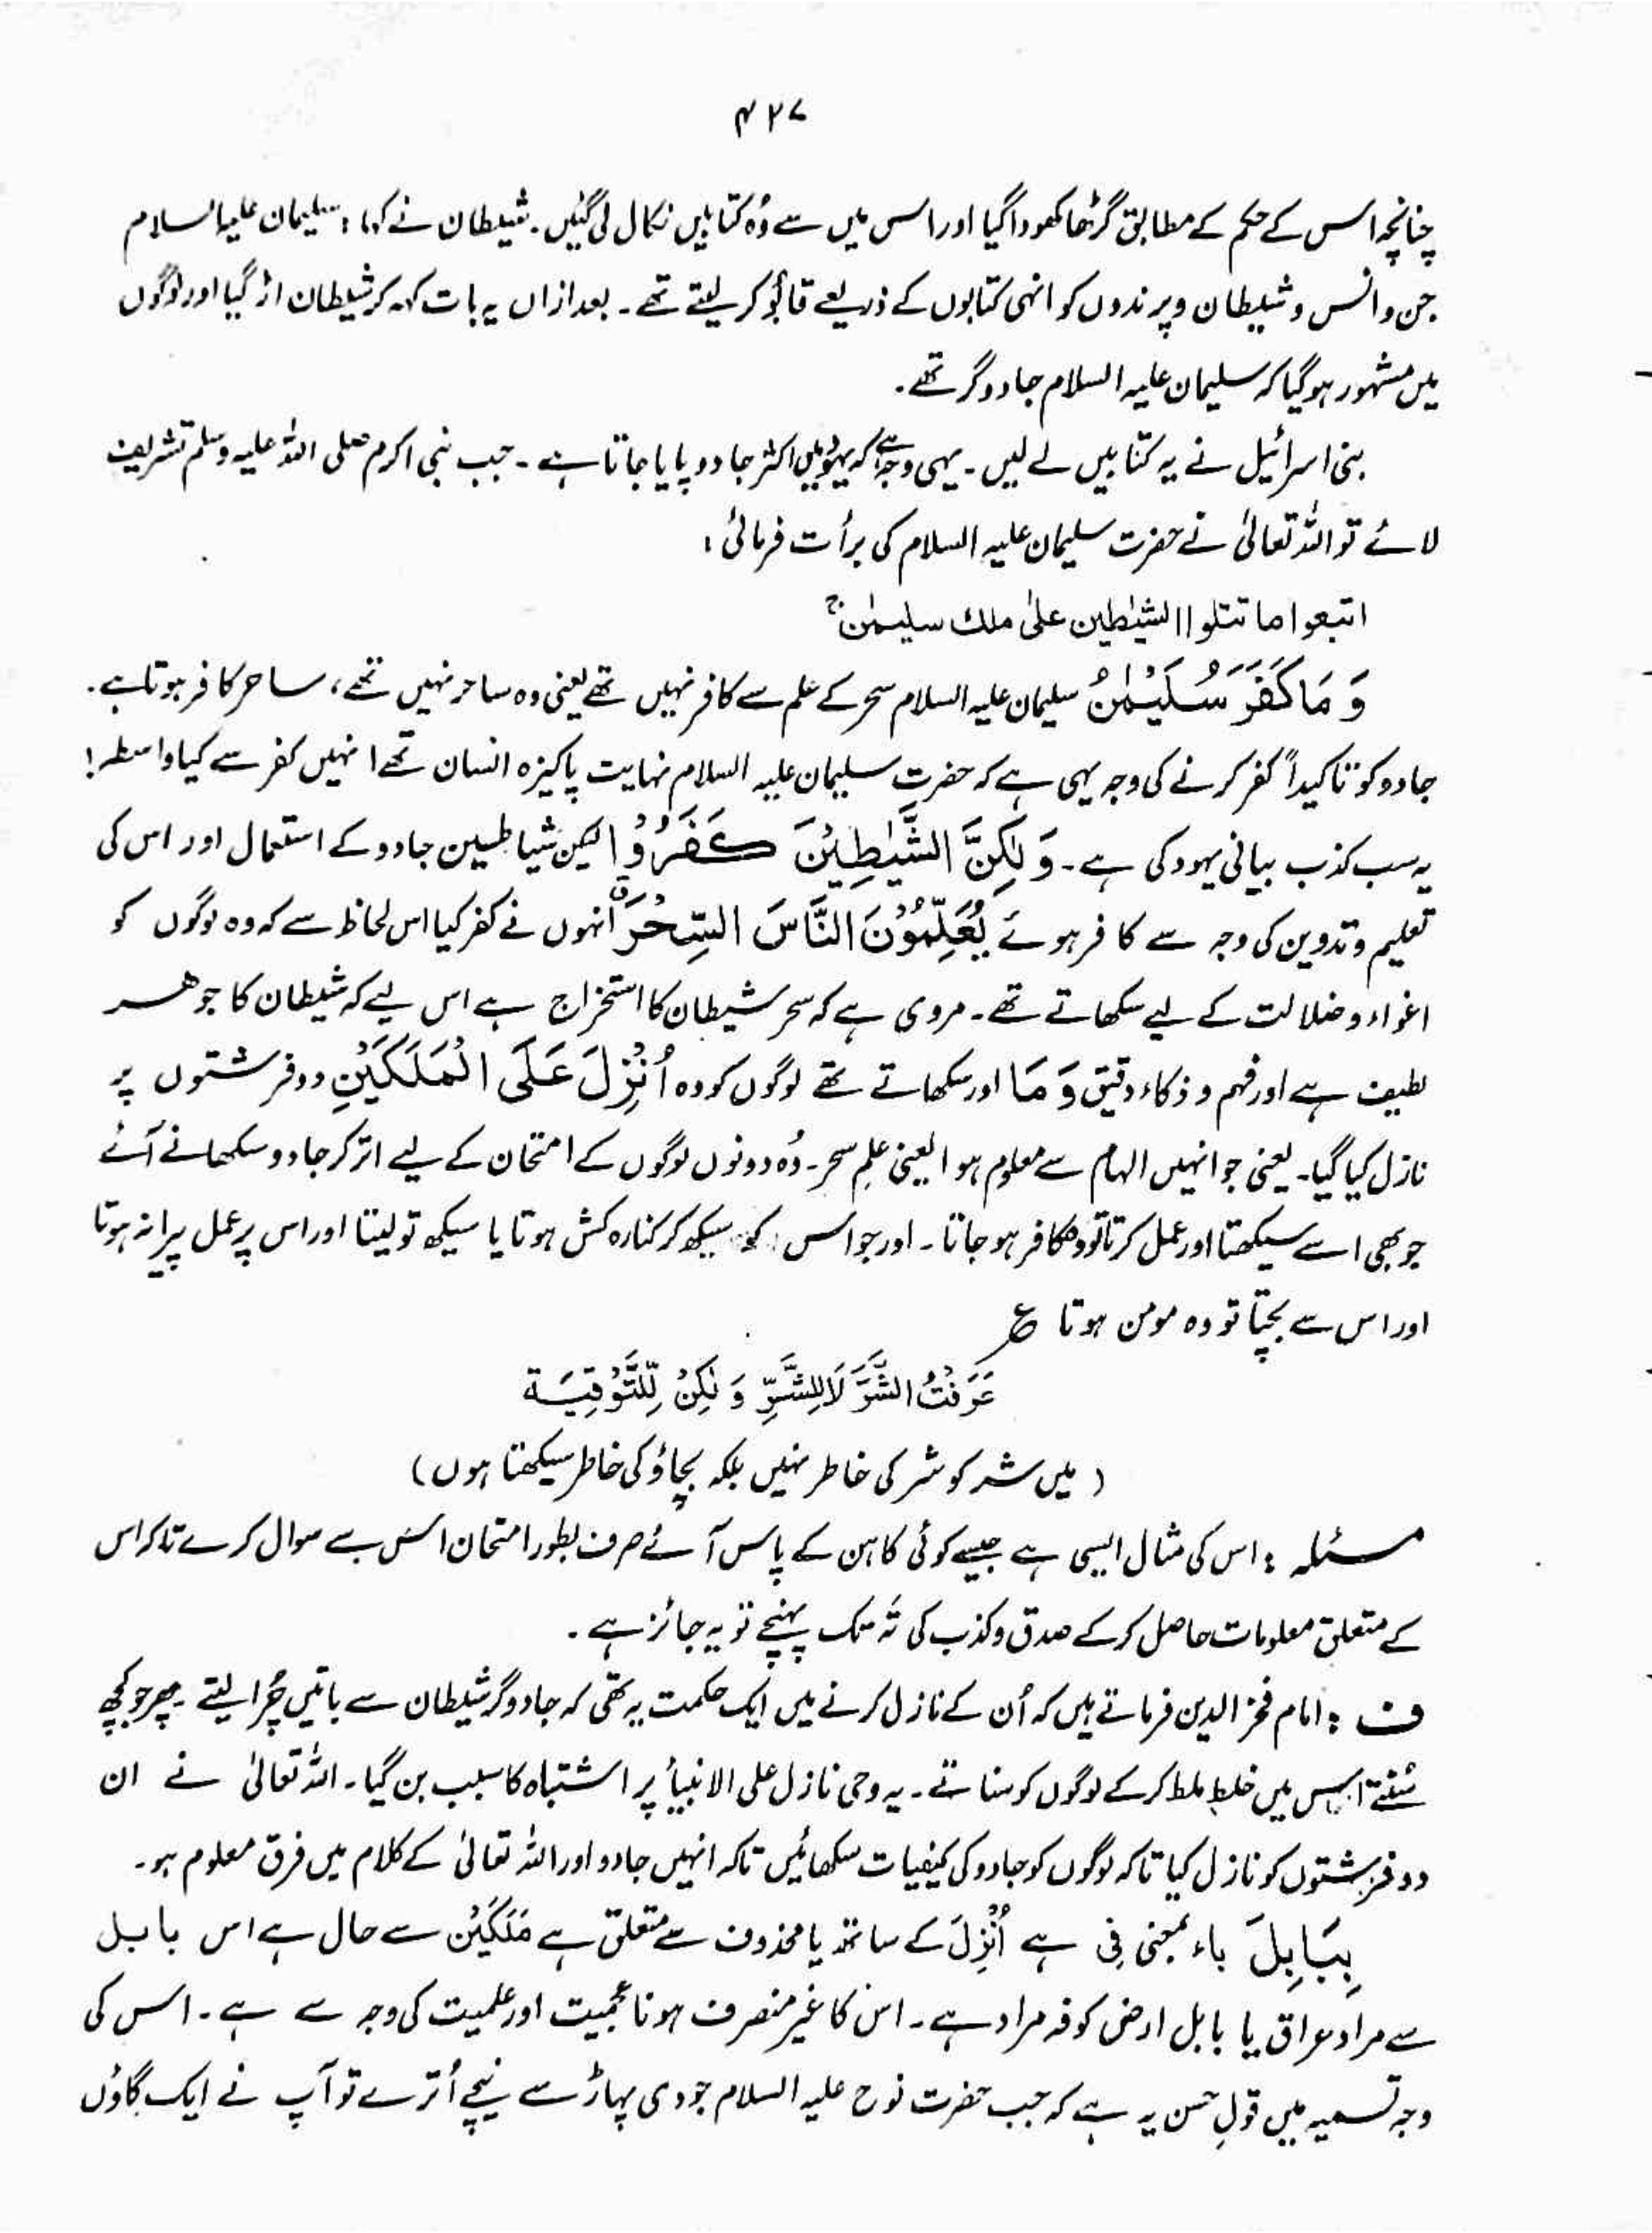 ۴۲۷
چنانچہ اس کے حکم کے مطابق گڑھا کھودا گیا اور اس میں سے وُہ کتابیں نکال لی گئیں۔ شیطان نے کہا : سلیمان علیہ السلام
جن و انس و شیطان و پرندوں کو انہی کتابوں کے ذریعے قابُو کر لیتے تھے۔ بعد ازاں یہ بات کہہ کر شیطان اڑ گیا اور لوگوں
میں مشہور ہو گیا کہ سلیمان علیہ السلام جادوگر تھے۔
بنی اسرائیل نے یہ کتابیں لے لیں۔ یہی وجہ ہے کہ یہود میں اکثر جادو پایا جاتا ہے۔ جب نبی اکرم صلی اللہ علیہ وسلم تشریف
لائے تو اللہ تعالیٰ نے حضرت سلیمان علیہ السلام کی برأت فرمائی :
اتبعوا ما تتلوا الشیٰطین علیٰ ملك سلیمٰن ج
وَ مَا كَفَرَ سُلَيْمٰنُ سلیمان علیہ السلام سحر کے علم سے کافر نہیں تھے یعنی وہ ساحر نہیں تھے، ساحر کافر ہوتا ہے۔
جادو کو تاکیداً کفر کرنے کی وجہ یہی ہے کہ حضرت سلیمان علیہ السلام نہایت پاکیزہ انسان تھے انہیں کفر سے کیا واسطہ!
یہ سب کذب بیانی یہود کی ہے۔ وَ لٰكِنَّ الشَّيٰطِيْنَ كَفَرُوْا لیکن شیاطین جادو کے استعمال اور اس کی
تعلیم و تدوین کی وجہ سے کافر ہوئے يُعَلِّمُوْنَ النَّاسَ السِّحْرَ ق انہوں نے کفر کیا اس لحاظ سے کہ وہ لوگوں کو
اغواء و ضلالت کے لیے سکھاتے تھے۔ مروی ہے کہ سحر شیطان کا استخراج ہے اس لیے کہ شیطان کا جوھر
لطیف ہے اور فہم و ذکاء دقیق وَ مَا اور سکھاتے تھے لوگوں کو وہ اُنْزِلَ عَلَى الْمَلَكَيْنِ دو فرشتوں پر
نازل کیا گیا۔ یعنی جو انہیں الہام سے معلوم ہوا یعنی علمِ سحر۔ وُہ دونوں لوگوں کے امتحان کے لیے اتر کر جادو سکھانے آئے
جو بھی اسے سیکھتا اور عمل کرتا تو وہ کافر ہو جاتا۔ اور جو اس کو سیکھ کر کنارہ کش ہوتا یا سیکھ تو لیتا اور اس پر عمل پیرا نہ ہوتا
اور اس سے بچتا تو وہ مومن ہوتا ع
عَرَفْتُ الشَّرَّ لَا لِلشَّرِّ وَ لٰكِنْ لِّلتَّوْقِيَة
( میں شر کو شر کی خاطر نہیں بلکہ بچاؤ کی خاطر سیکھتا ہوں )
مسئلہ : اس کی مثال ایسی ہے جیسے کوئی کاہن کے پاس آئے صرف بطور امتحان اس سے سوال کرے تاکہ اس
کے متعلق معلومات حاصل کر کے صدق و کذب کی تَہ تک پہنچے تو یہ جائز ہے۔
ف : امام فخر الدین فرماتے ہیں کہ اُن کے نازل کرنے میں ایک حکمت یہ تھی کہ جادوگر شیطان سے باتیں چُرا لیتے۔ پھر جو کچھ
سُنتے اس میں خلط ملط کر کے لوگوں کو سناتے۔ یہ وحی نازل علی الانبیأ پر اشتباہ کا سبب بن گیا۔ اللہ تعالیٰ نے ان
دو فرشتوں کو نازل کیا تاکہ لوگوں کو جادو کی کیفیات سکھائیں تاکہ انہیں جادو اور اللہ تعالیٰ کے کلام میں فرق معلوم ہو۔
بِبَابِلَ باء بمعنی فِی ہے اُنْزِلَ کے ساتھ یا محذوف سے متعلق ہے مَلَكَيْن سے حال ہے اس بابل
سے مراد عراق یا بابل ارض کوفہ مراد ہے۔ اس کا غیر منصرف ہونا عجمیت اور علمیت کی وجہ سے ہے۔ اس کی
وجہ تسمیہ میں قولِ حسن یہ ہے کہ جب حضرت نوح علیہ السلام جودی پہاڑ سے نیچے اُترے تو آپ نے ایک گاؤں